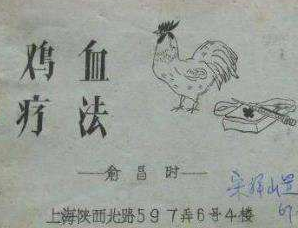 鸡血
疗法
——俞昌时——
上海陕西北路597弄6号4楼